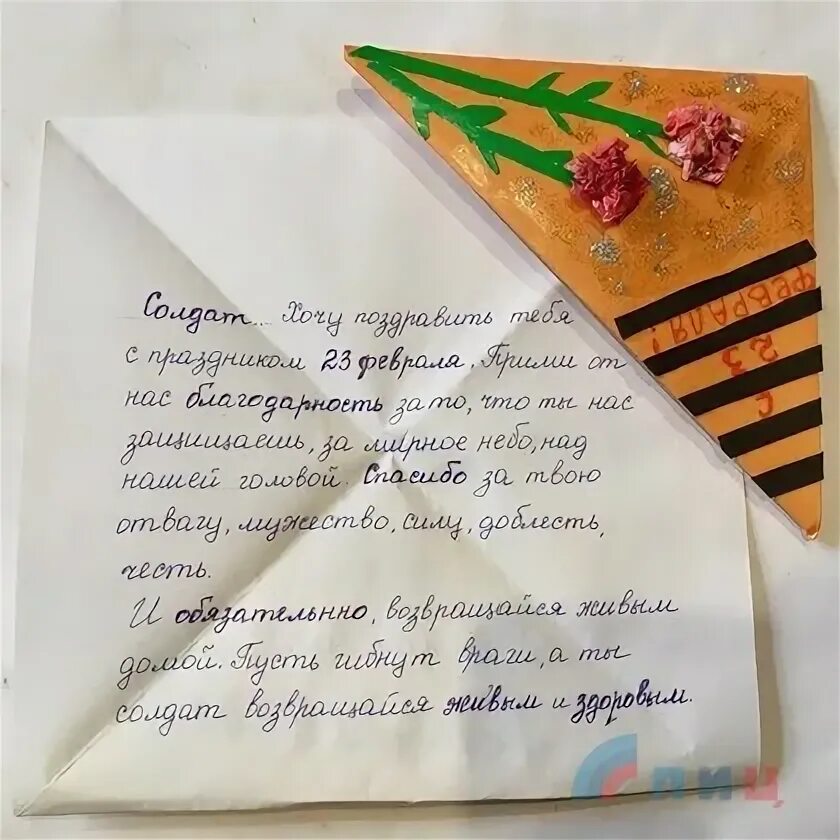 Солдат... Хочу поздравить тебя
с праздником 23 февраля. Прими от
нас благодарность за то, что ты нас
защищаешь, за мирное небо, над
нашей головой. Спасибо за твою
отвагу, мужество, силу, доблесть,
честь.
И обязательнно, возвращайся живым
домой. Пусть гибнут враги, а ты
солдат возвращайся живым и здоровым.
С
23
ФЕВРАЛЯ!
ЛИЦ